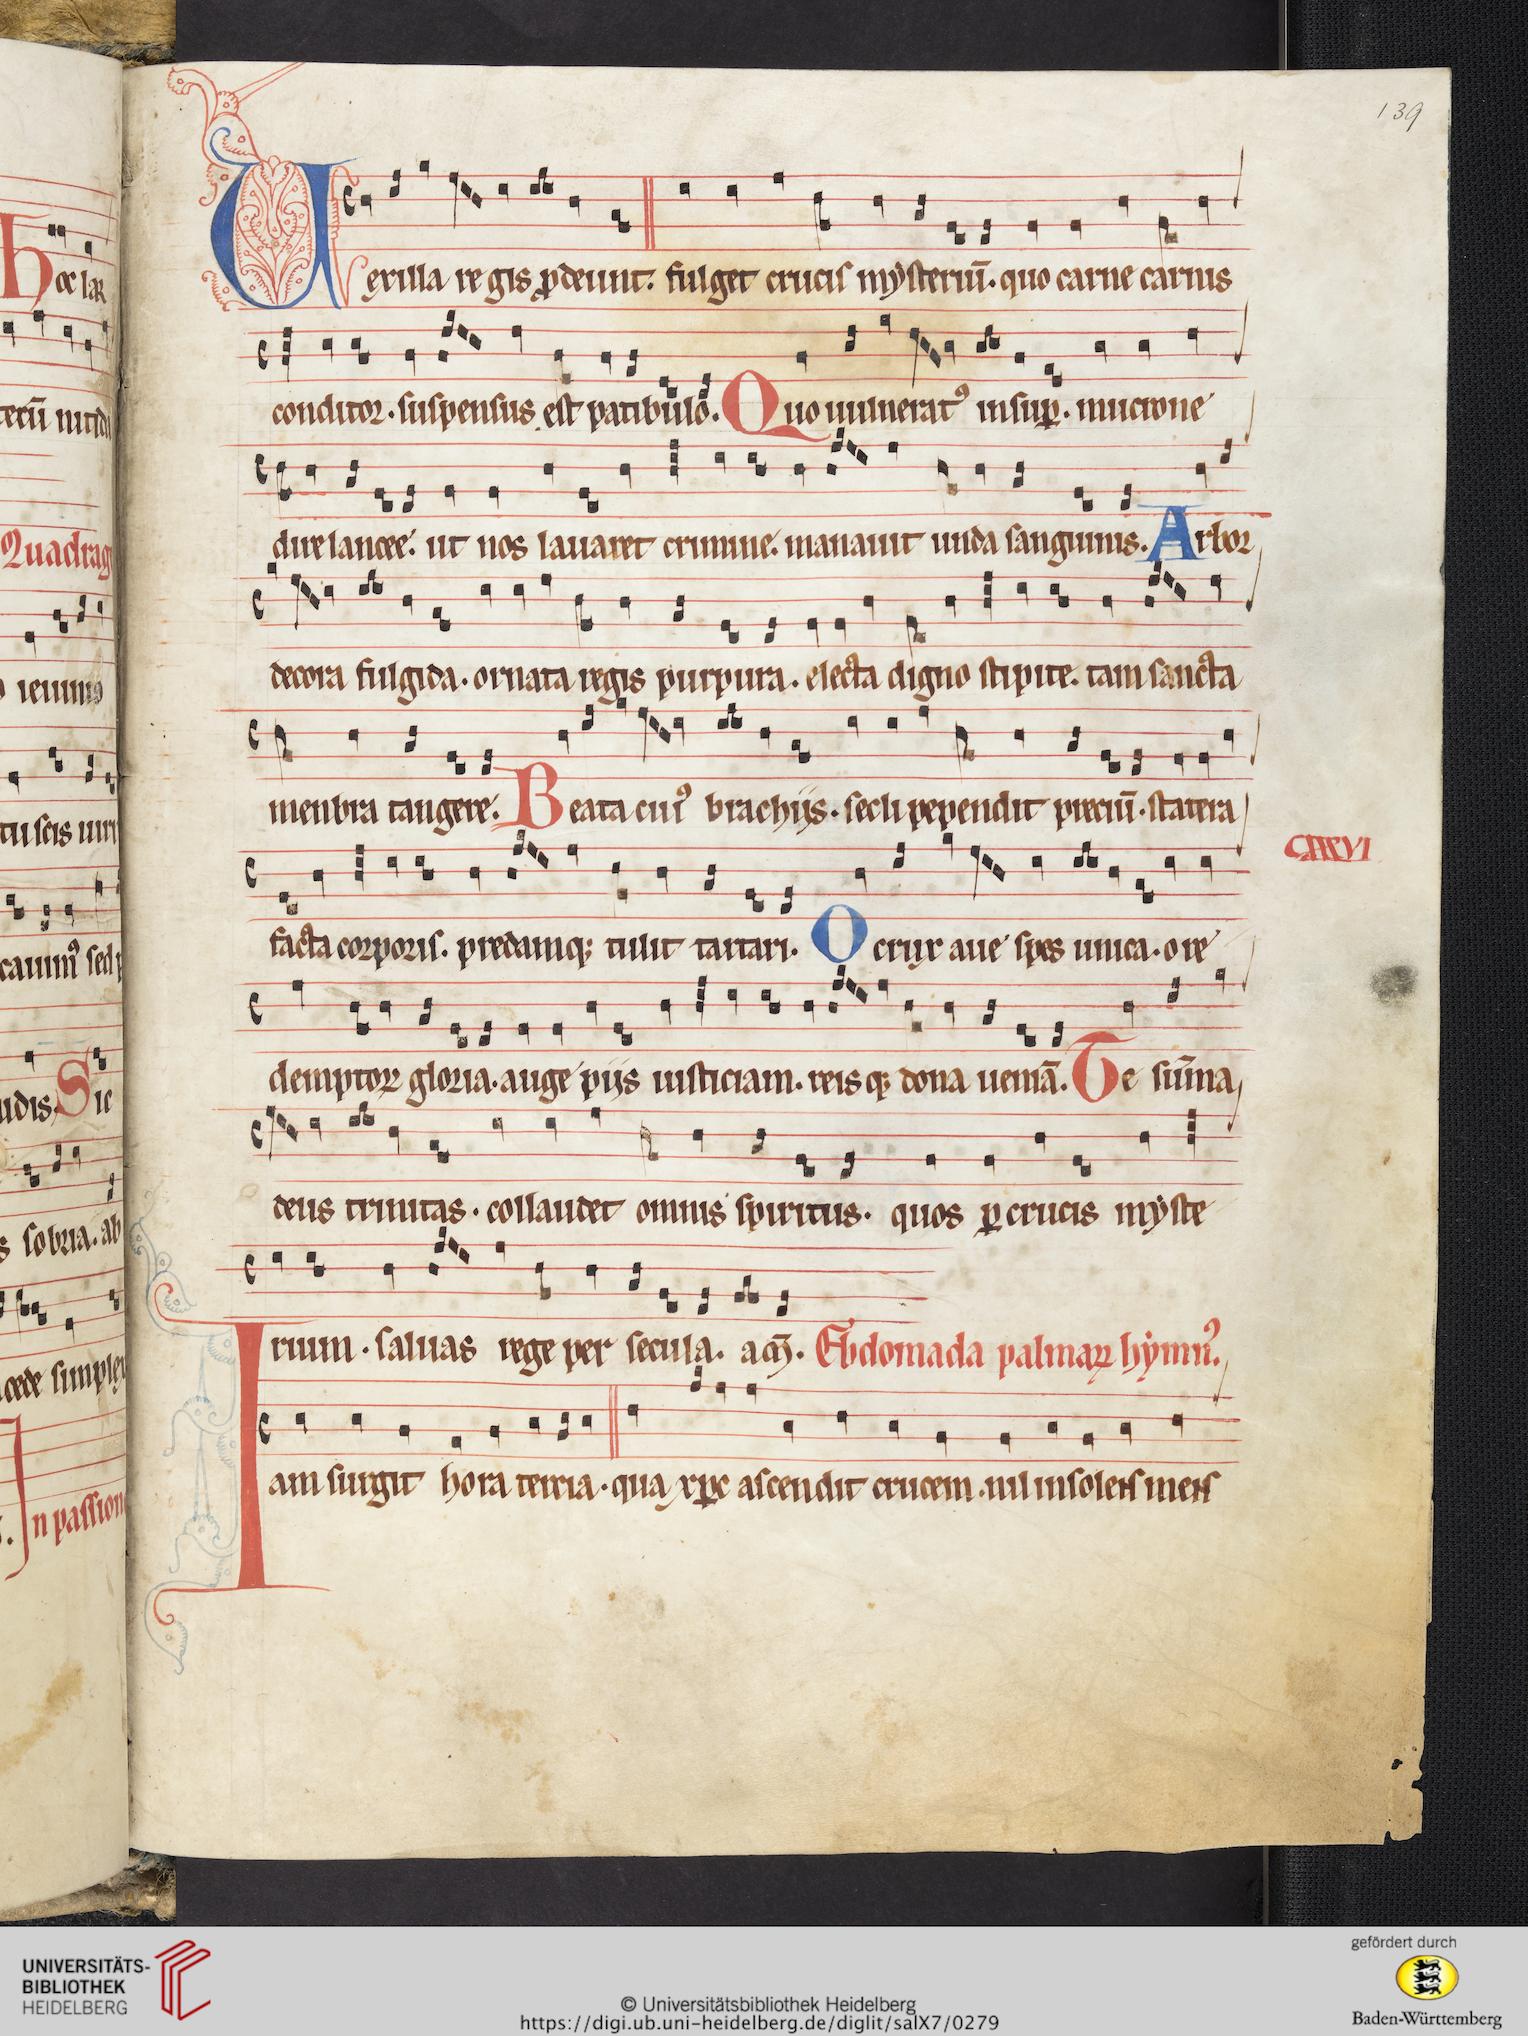 139
hec lar
Vexilla regis ꝓdeunt. fulget crucis mysteriū. quo carne carnis
conditor. suspensus est patibulo. Quo uulneratꝰ insuꝑ. mucrone
terū nitidu
dire lancee. ut nos lauaret crimine. manauit unda sanguinis. Arbor
Quadrag
decora fulgida. ornata regis purpura. electa digno stipite. tam sancta
ieiunio
menbra tangere. Beata cuiꝰ brachijs. secli pependit preciū. statera
CXXVI
facta corporis. predamqꝫ tulit tartari. O crux aue spes unica. o re
demptor gloria. auge pijs iusticiam. reisqꝫ dona ueniā. Te sūma
Sic
deus trinitas. collaudet omnis spiritus. quos ꝑ crucis myste
sobria. ab
rium. saluas rege per secula. am̄. Ebdomada palmaꝝ hymnꝰ.
cede simplex
Iam surgit hora tercia. qua xp̄c ascendit crucem. nil insolens mens
In passion
UNIVERSITÄTS-
BIBLIOTHEK
HEIDELBERG
© Universitätsbibliothek Heidelberg
https://digi.ub.uni-heidelberg.de/diglit/salX7/0279
gefördert durch
Baden-Württemberg